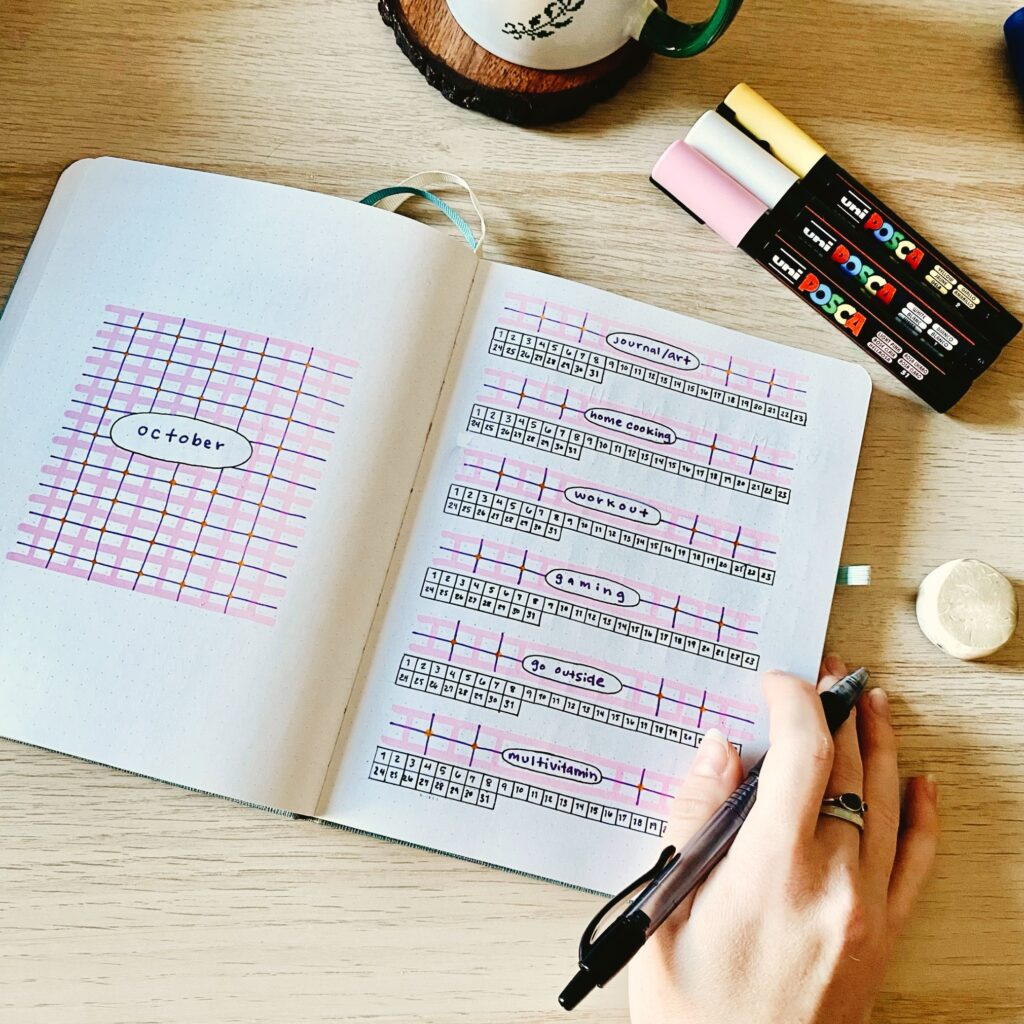 october
journal/art
1 2 3 4 5 6 7 8 9 10 11 12 13 14 15 16 17 18 19 20 21 22 23
24 25 26 27 28 29 30 31
home cooking
1 2 3 4 5 6 7 8 9 10 11 12 13 14 15 16 17 18 19 20 21 22 23
24 25 26 27 28 29 30 31
workout
1 2 3 4 5 6 7 8 9 10 11 12 13 14 15 16 17 18 19 20 21 22 23
24 25 26 27 28 29 30 31
gaming
1 2 3 4 5 6 7 8 9 10 11 12 13 14 15 16 17 18 19 20 21 22 23
24 25 26 27 28 29 30 31
go outside
1 2 3 4 5 6 7 8 9 10 11 12 13 14 15 16 17 18 19 20
24 25 26 27 28 29 30 31
multivitamin
1 2 3 4 5 6 7 8 9 10 11 12 13 14 15 16 17 18 19
24 25 26 27 28 29 30 31
uni POSCA
uni POSCA
uni POSCA